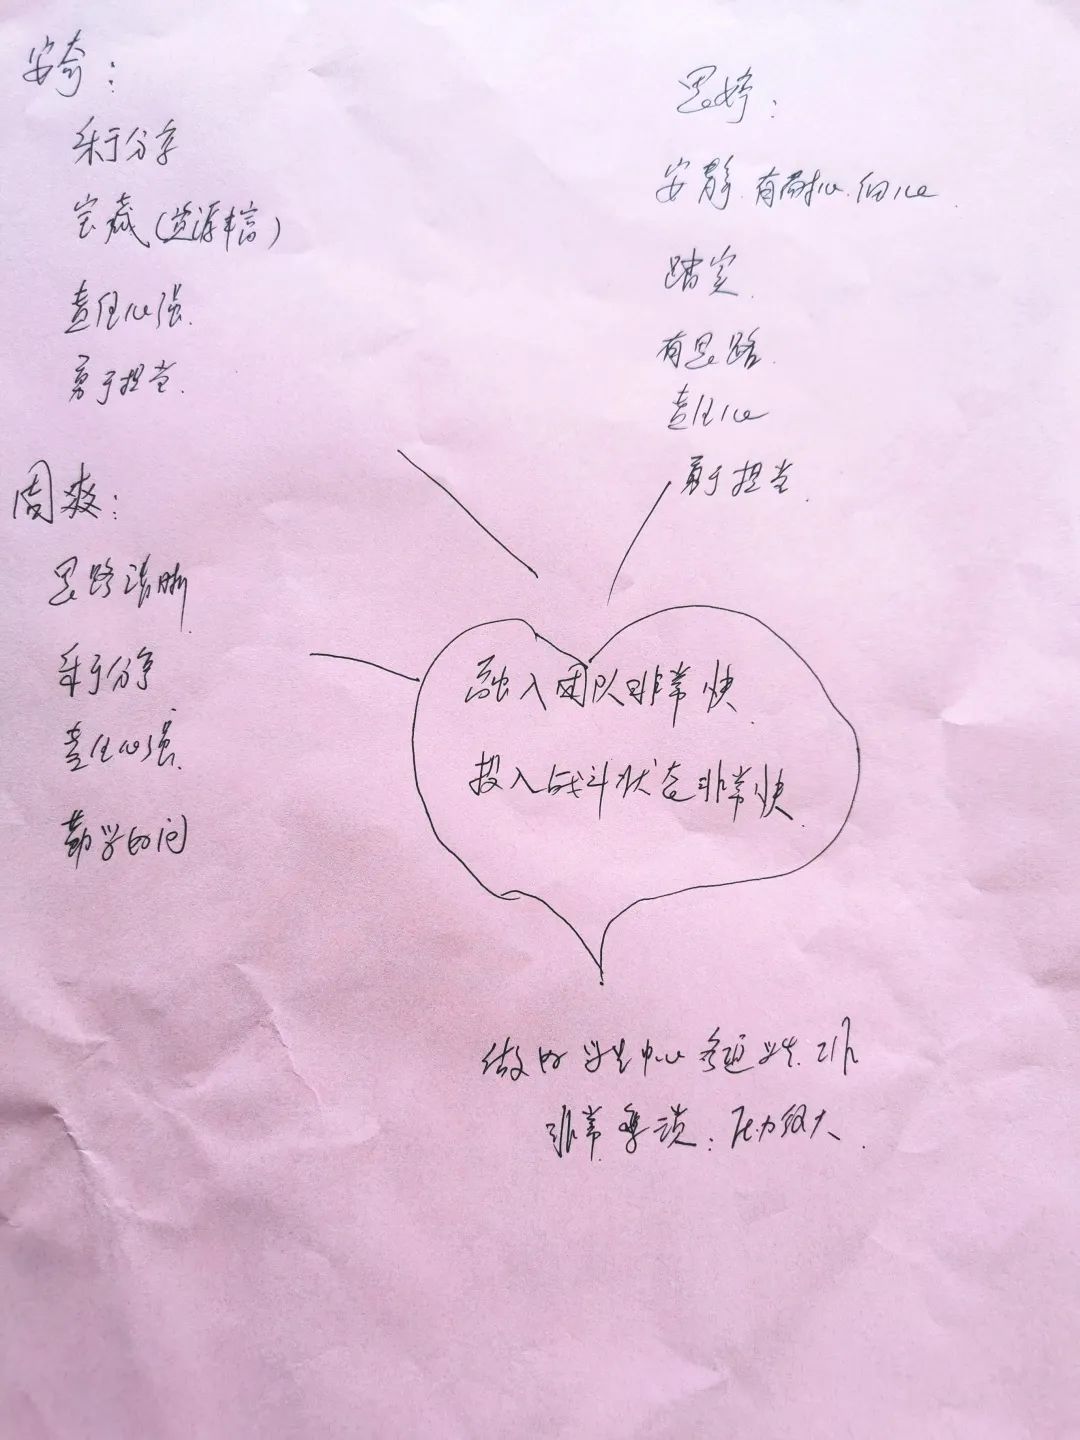 安奇：
乐于分享
宝藏（资源丰富）
责任心强.
勇于担当.
思婷：
安静.有耐心.细心.
踏实.
有思路.
责任心
勇于担当.
周爽：
思路清晰
乐于分享
责任心强.
勤学好问
融入团队非常快.
投入战斗状态非常快.
做好学生中心 工作
非常 压力很大.